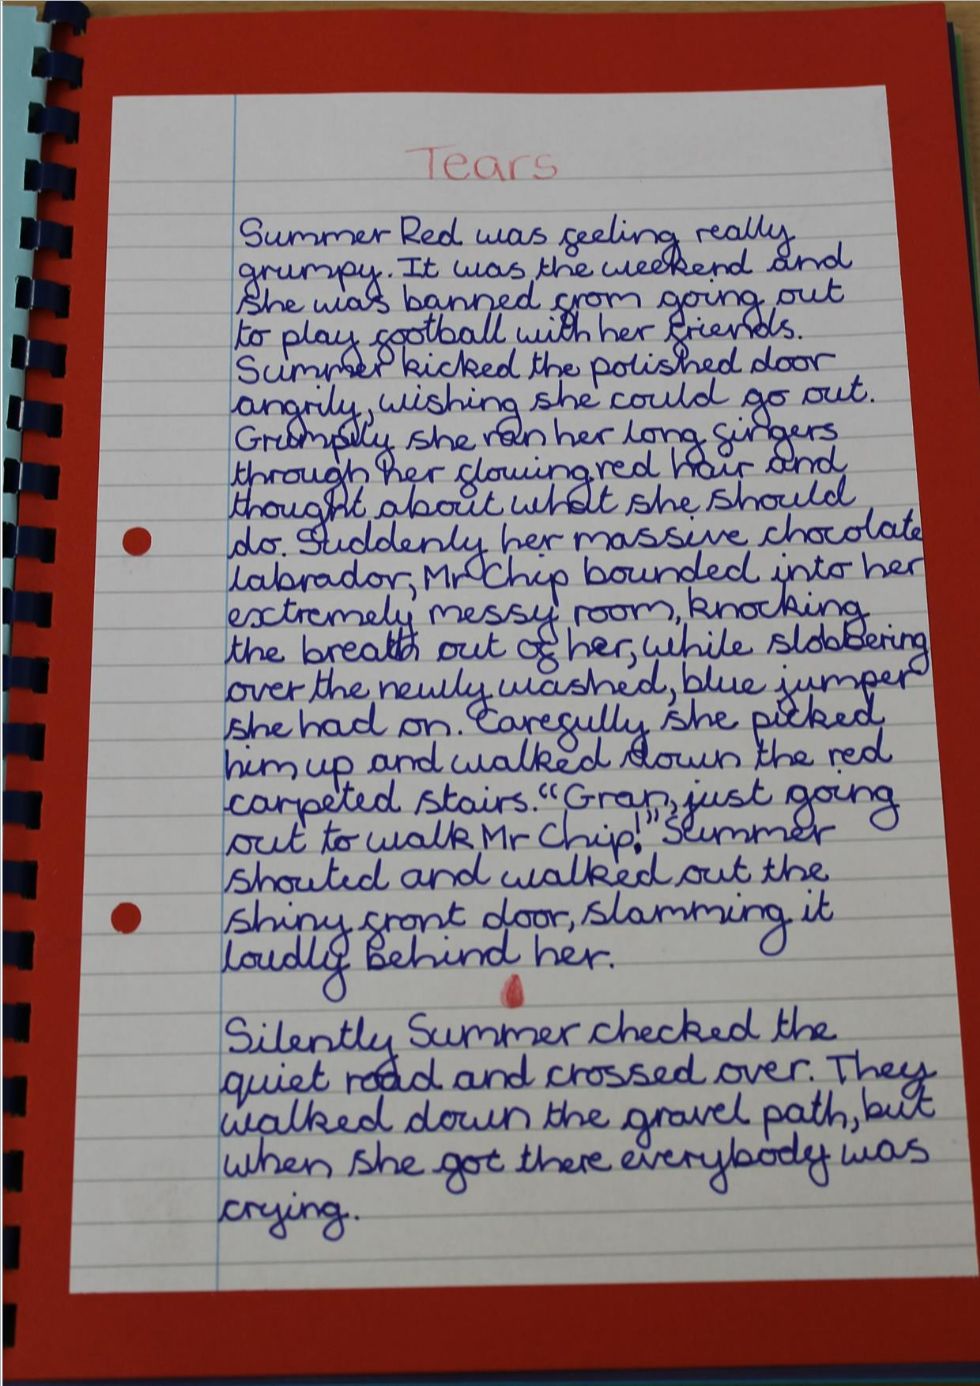 Tears
Summer Red was feeling really
grumpy. It was the weekend and
she was banned from going out
to play football with her friends.
Summer kicked the polished door
angrily, wishing she could go out.
Grumpily she ran her long fingers
through her flowing red hair and
thought about what she should
do. Suddenly her massive chocolate
labrador, Mr Chip bounded into her
extremely messy room, knocking
the breath out of her, while slobbering
over the newly washed, blue jumper
she had on. Carefully she picked
him up and walked down the red
carpeted stairs. "Gran, just going
out to walk Mr Chip!" Summer
shouted and walked out the
shiny front door, slamming it
loudly behind her.
Silently Summer checked the
quiet road and crossed over. They
walked down the gravel path, but
when she got there everybody was
crying.